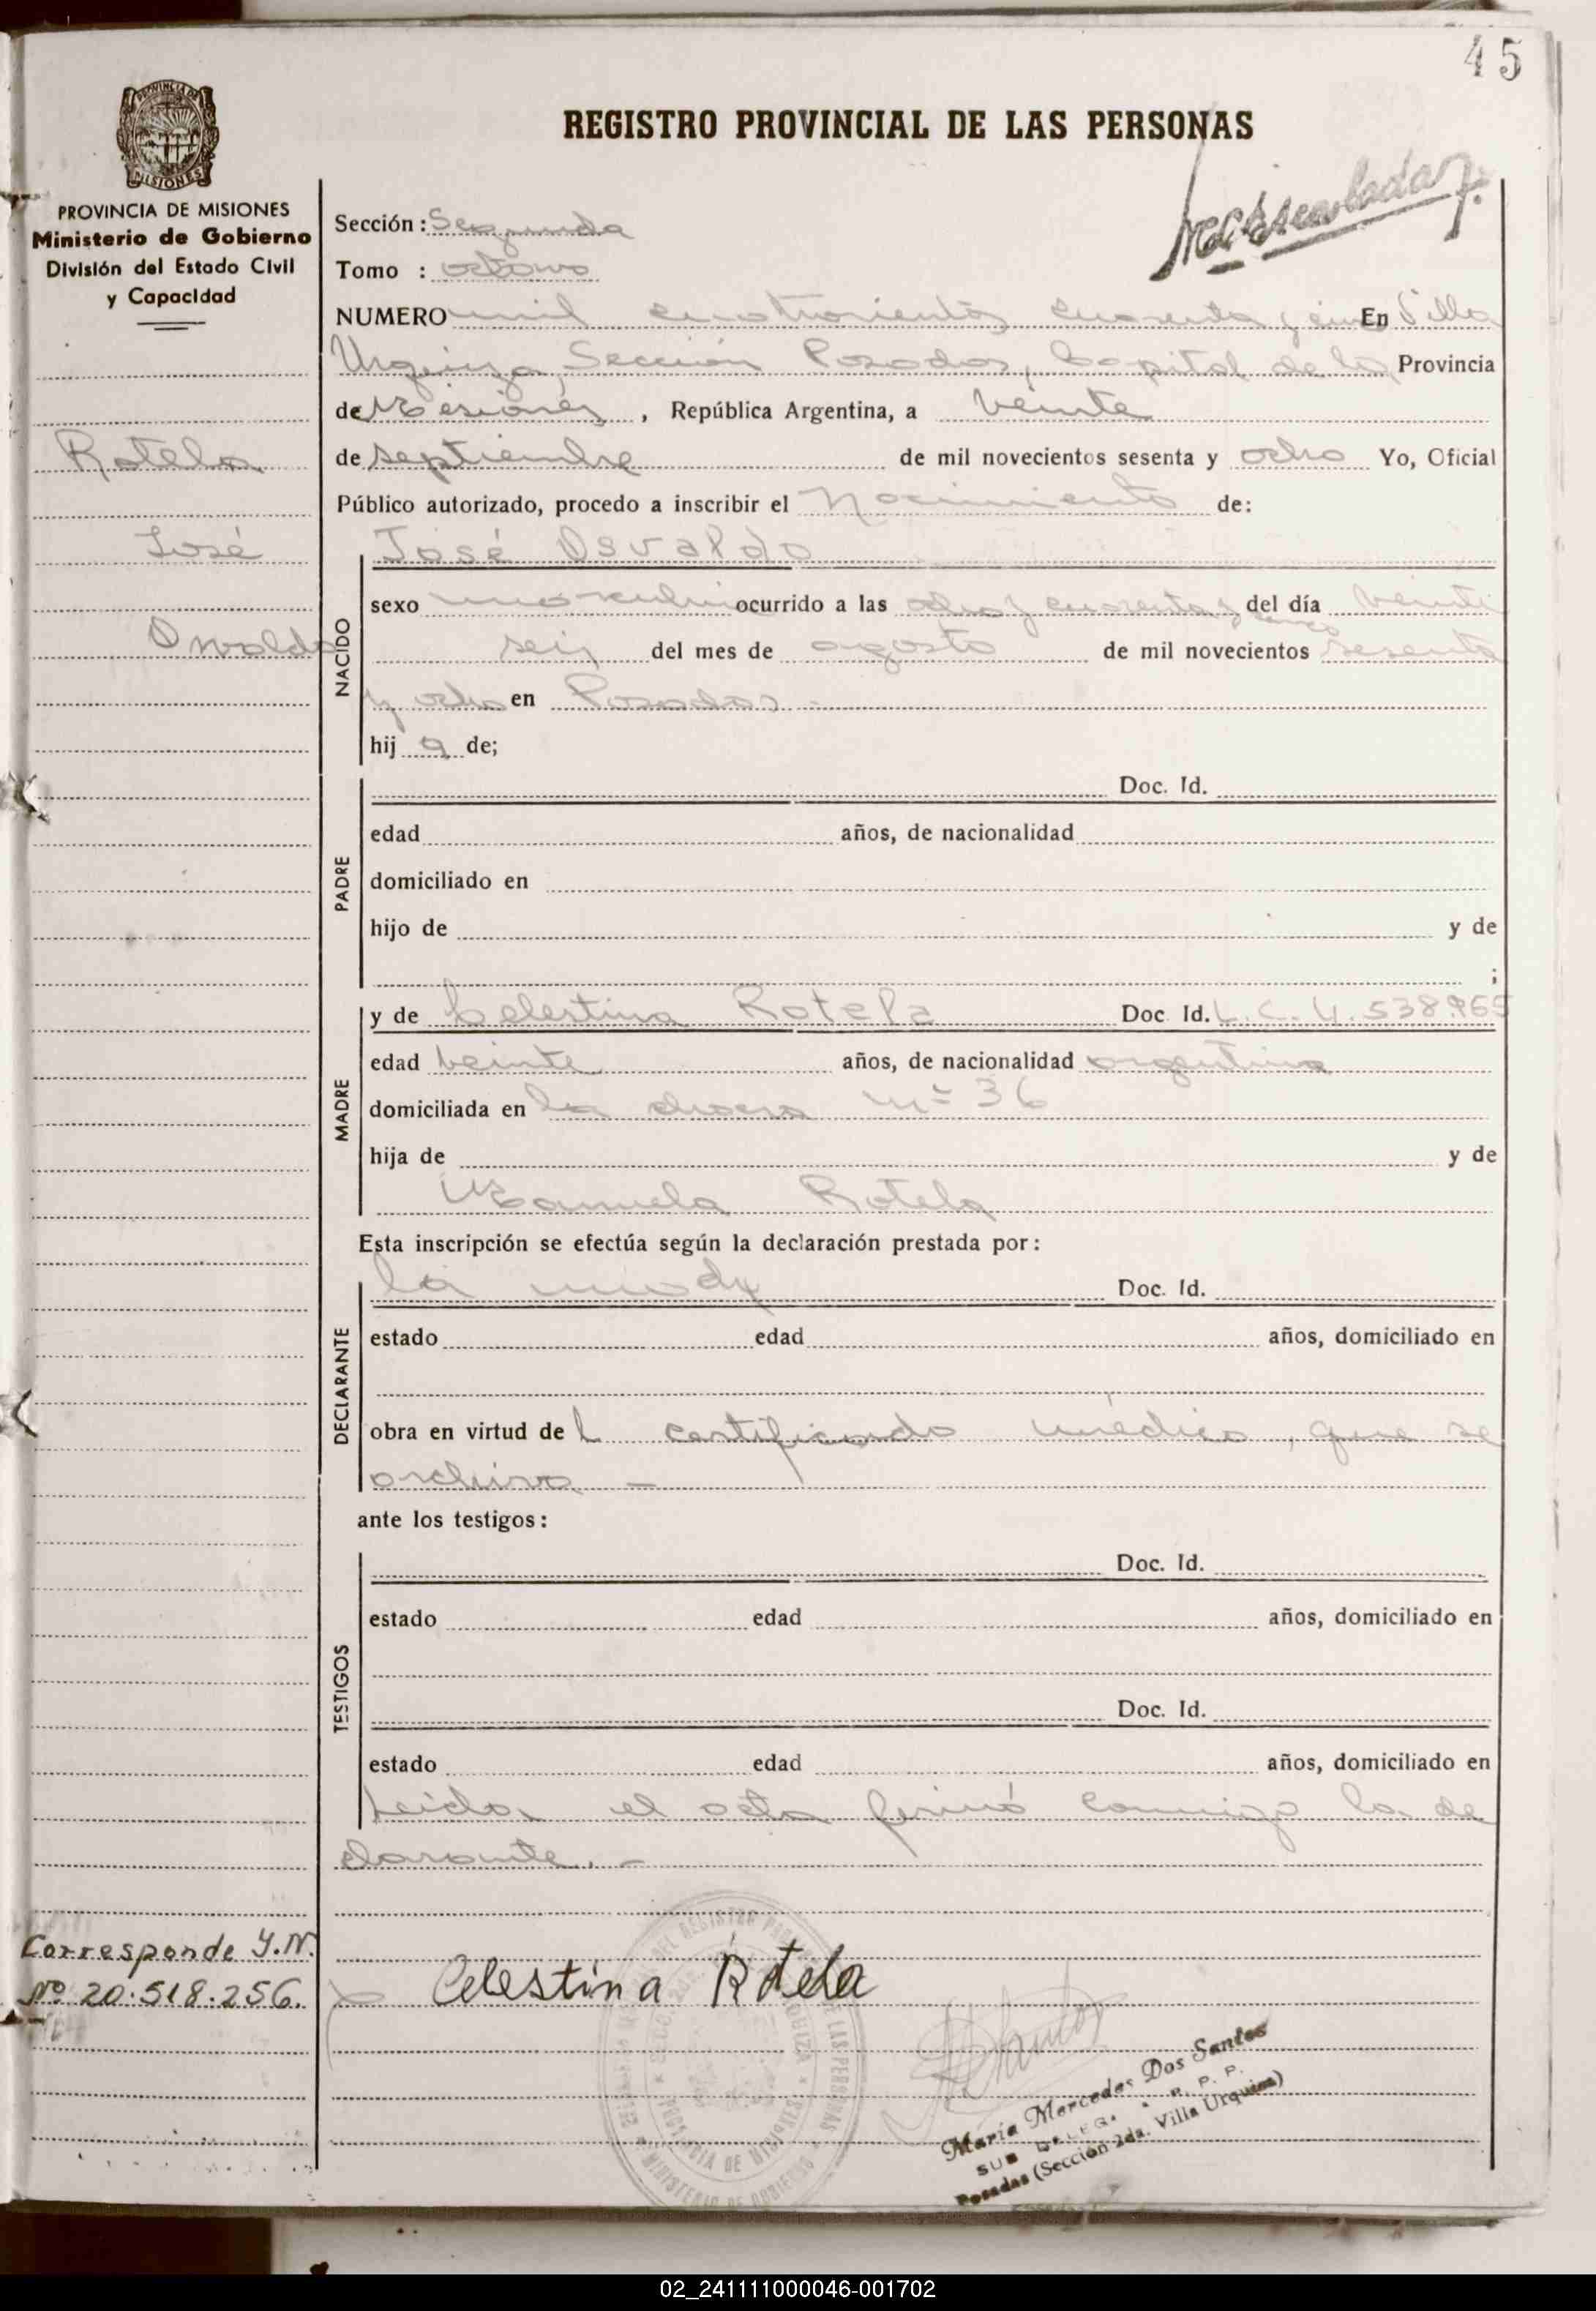 45
REGISTRO PROVINCIAL DE LAS PERSONAS
PROVINCIA DE MISIONES
Ministerio de Gobierno
División del Estado Civil
y Capacidad
Rotela
José
Osvaldo
Corresponde I.N.
Nº 20.518.256.
Sección: Segunda
Tomo : octavo
NUMERO mil cuatrocientos cuarenta y cinco En Villa
Urquiza, Sección Posadas, Capital de la Provincia
de Misiones, República Argentina, a veinte
de septiembre de mil novecientos sesenta y ocho Yo, Oficial
Público autorizado, procedo a inscribir el nacimiento de:
José Osvaldo
NACIDO
sexo masculino ocurrido a las ocho y cuarenta y cinco del día veinti
seis del mes de agosto de mil novecientos sesenta
y ocho en Posadas.-
hij o de;
PADRE
Doc. Id.
edad años, de nacionalidad
domiciliado en
hijo de y de
;
MADRE
y de Celestina Rotela Doc. Id. L.C. 4.538.965
edad veinte años, de nacionalidad argentina
domiciliada en la chacra nº 36
hija de y de
Manuela Rotela
Esta inscripción se efectúa según la declaración prestada por:
DECLARANTE
la madre Doc. Id.
estado edad años, domiciliado en
obra en virtud de l certificado médico, que se
archiva -
ante los testigos:
TESTIGOS
Doc. Id.
estado edad años, domiciliado en
Doc. Id.
estado edad años, domiciliado en
Leída el acta firmó conmigo la de
clarante. -
Celestina Rotela
María Mercedes Dos Santos
SUB DELEG. R. P. P.
Posadas (Sección 2da. Villa Urquiza)
02_241111000046-001702